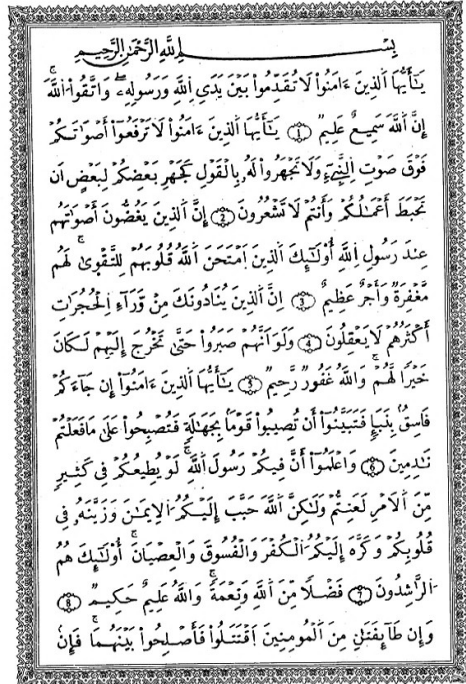 بِسْمِ اللَّهِ الرَّحْمَٰنِ الرَّحِيمِ
يَٰٓأَيُّهَا اَلذِينَ ءَامَنُواْ لَا تُقَدِّمُواْ بَيْنَ يَدَيِ اِللَّهِ وَرَسُولِهِۦ وَاتَّقُواْ اُللَّهَ
إِنَّ اَللَّهَ سَمِيعٌ عَلِيمٌ 1 يَٰٓأَيُّهَا اَلذِينَ ءَامَنُواْ لَا تَرْفَعُواْ أَصْوَٰتَكُمْ
فَوْقَ صَوْتِ اِلنَّبِيٓءِ وَلَا تَجْهَرُواْ لَهُۥ بِالْقَوْلِ كَجَهْرِ بَعْضِكُمْ لِبَعْضٍ اَن
تَحْبَطَ أَعْمَٰلُكُمْ وَأَنتُمْ لَا تَشْعُرُونَ 2 إِنَّ اَلذِينَ يَغُضُّونَ أَصْوَٰتَهُمْ
عِندَ رَسُولِ اِللَّهِ أُوْلَٰٓئِكَ اَلذِينَ اَمْتَحَنَ اَللَّهُ قُلُوبَهُمْ لِلتَّقْوِىٰ لَهُم
مَّغْفِرَةٌ وَأَجْرٌ عَظِيمٌ 3 اِنَّ اَلذِينَ يُنَادُونَكَ مِنْ وَّرَآءِ اِلْحُجُرَٰتِ
أَكْثَرُهُمْ لَا يَعْقِلُونَ 4 وَلَوَ اَنَّهُمْ صَبَرُواْ حَتَّىٰ تَخْرُجَ إِلَيْهِمْ لَكَانَ
خَيْرًا لَّهُمْ وَاللَّهُ غَفُورٌ رَّحِيمٌ 5 يَٰٓأَيُّهَا اَلذِينَ ءَامَنُواْ إِن جَآءَكُمْ
فَاسِقٌ بِنَبَإٍ فَتَبَيَّنُواْ أَن تُصِيبُواْ قَوْماً بِجَهَٰلَةٍ فَتُصْبِحُواْ عَلَىٰ مَا فَعَلْتُمْ
نَٰدِمِينَ 6 وَاعْلَمُواْ أَنَّ فِيكُمْ رَسُولَ اَللَّهِ لَوْ يُطِيعُكُمْ فِي كَثِيرٍ
مِّنَ اَلَامْرِ لَعَنِتُّمْ وَلَٰكِنَّ اَللَّهَ حَبَّبَ إِلَيْكُمُ اُلِايمَٰنَ وَزَيَّنَهُۥ فِي
قُلُوبِكُمْ وَكَرَّهَ إِلَيْكُمُ اُلْكُفْرَ وَالْفُسُوقَ وَالْعِصْيَانَ أُوْلَٰٓئِكَ هُمُ
اُلرَّٰشِدُونَ 7 فَضْلًا مِّنَ اَللَّهِ وَنِعْمَةً وَاللَّهُ عَلِيمٌ حَكِيمٌ 8
وَإِن طَآئِفَتَٰنِ مِنَ اَلْمُومِنِينَ اَقْتَتَلُواْ فَأَصْلِحُواْ بَيْنَهُمَا فَإِنۢ